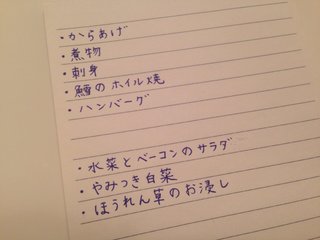 ・からあげ
・煮物
・刺身
・鱈のホイル焼
・ハンバーグ
・水菜とベーコンのサラダ
・やみつき白菜
・ほうれん草のお浸し